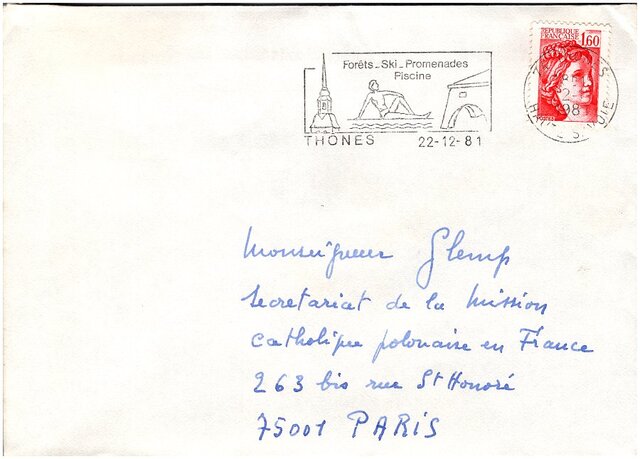 Forêts_Ski_Promenades
Piscine
THONES 22-12-81
REPUBLIQUE
FRANÇAISE 1,60
HAUTE SAVOIE
Monseigneur Glemp
Secretariat de la Mission
catholique polonaise en France
263 bis rue St Honoré
75001 PARIS